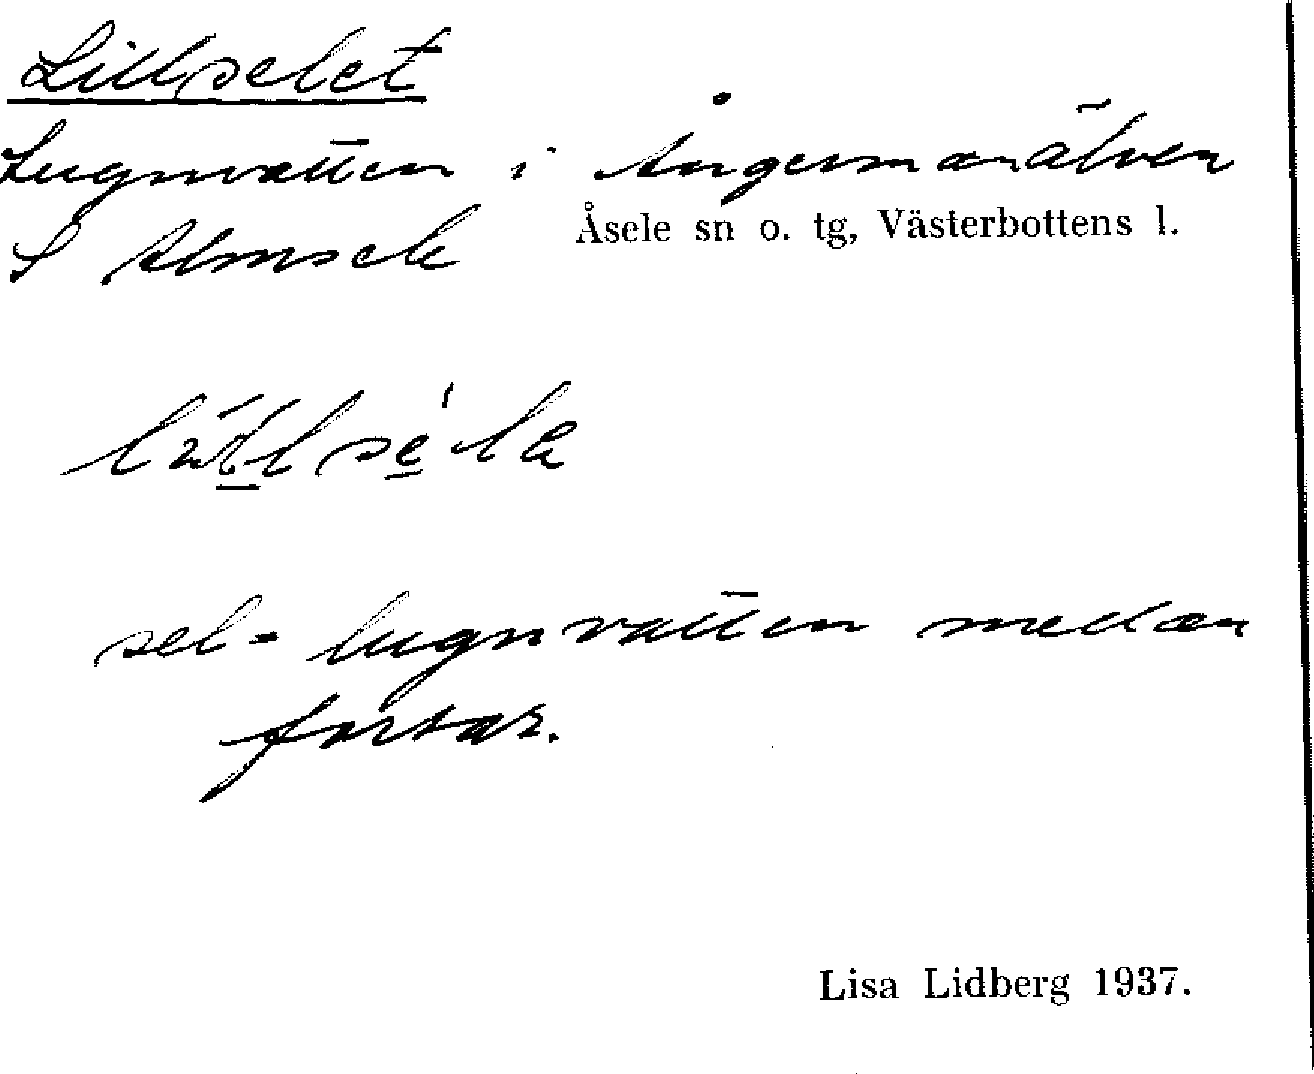 Lillselet
Lugnvatten i Ångermanälven
Åsele sn o. tg, Västerbottens l.
S Almsele
sel- lugnvatten medan
forsar.
Lisa Lidberg 1937.